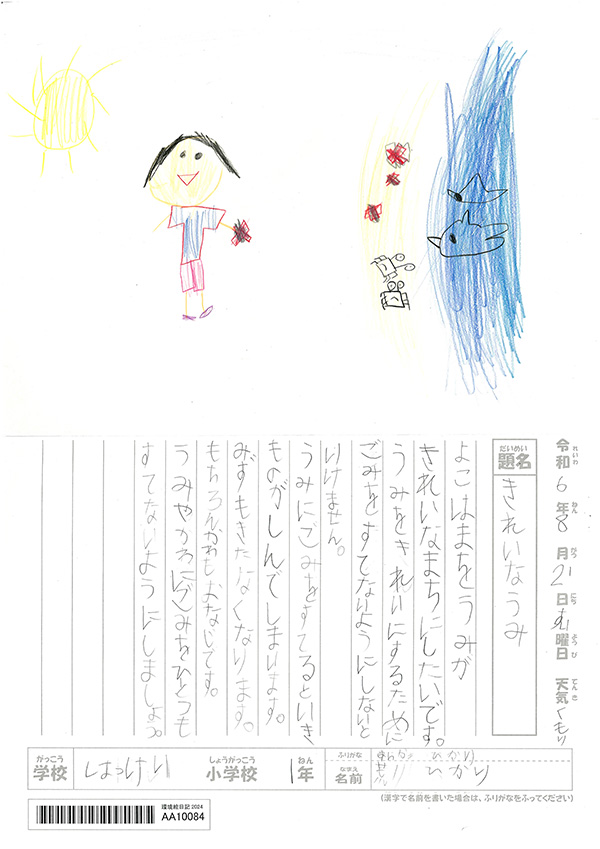 れいわ ねん がつ にち ようび てんき
令和6年8月21日 すい曜日 天気 くもり
だいめい
題名 きれいなうみ
よこはまをうみが
きれいなまちにしたいです。
うみをきれいにするために
ごみをすてないようにしないと
いけません。
うみにごみをすてるといき
ものがしんでしまいます。
みずもきたなくなります。
もちろんかわもおなじです。
うみやかわにごみをひとつも
すてないようにしましょう。
がっこう しょうがっこう ねん
学校 はっけい 小学校 1年
ふりがな ひかり
なまえ
名前 ひかり
(漢字で名前を書いた場合は、ふりがなをふってください)
環境絵日記2024
AA10084